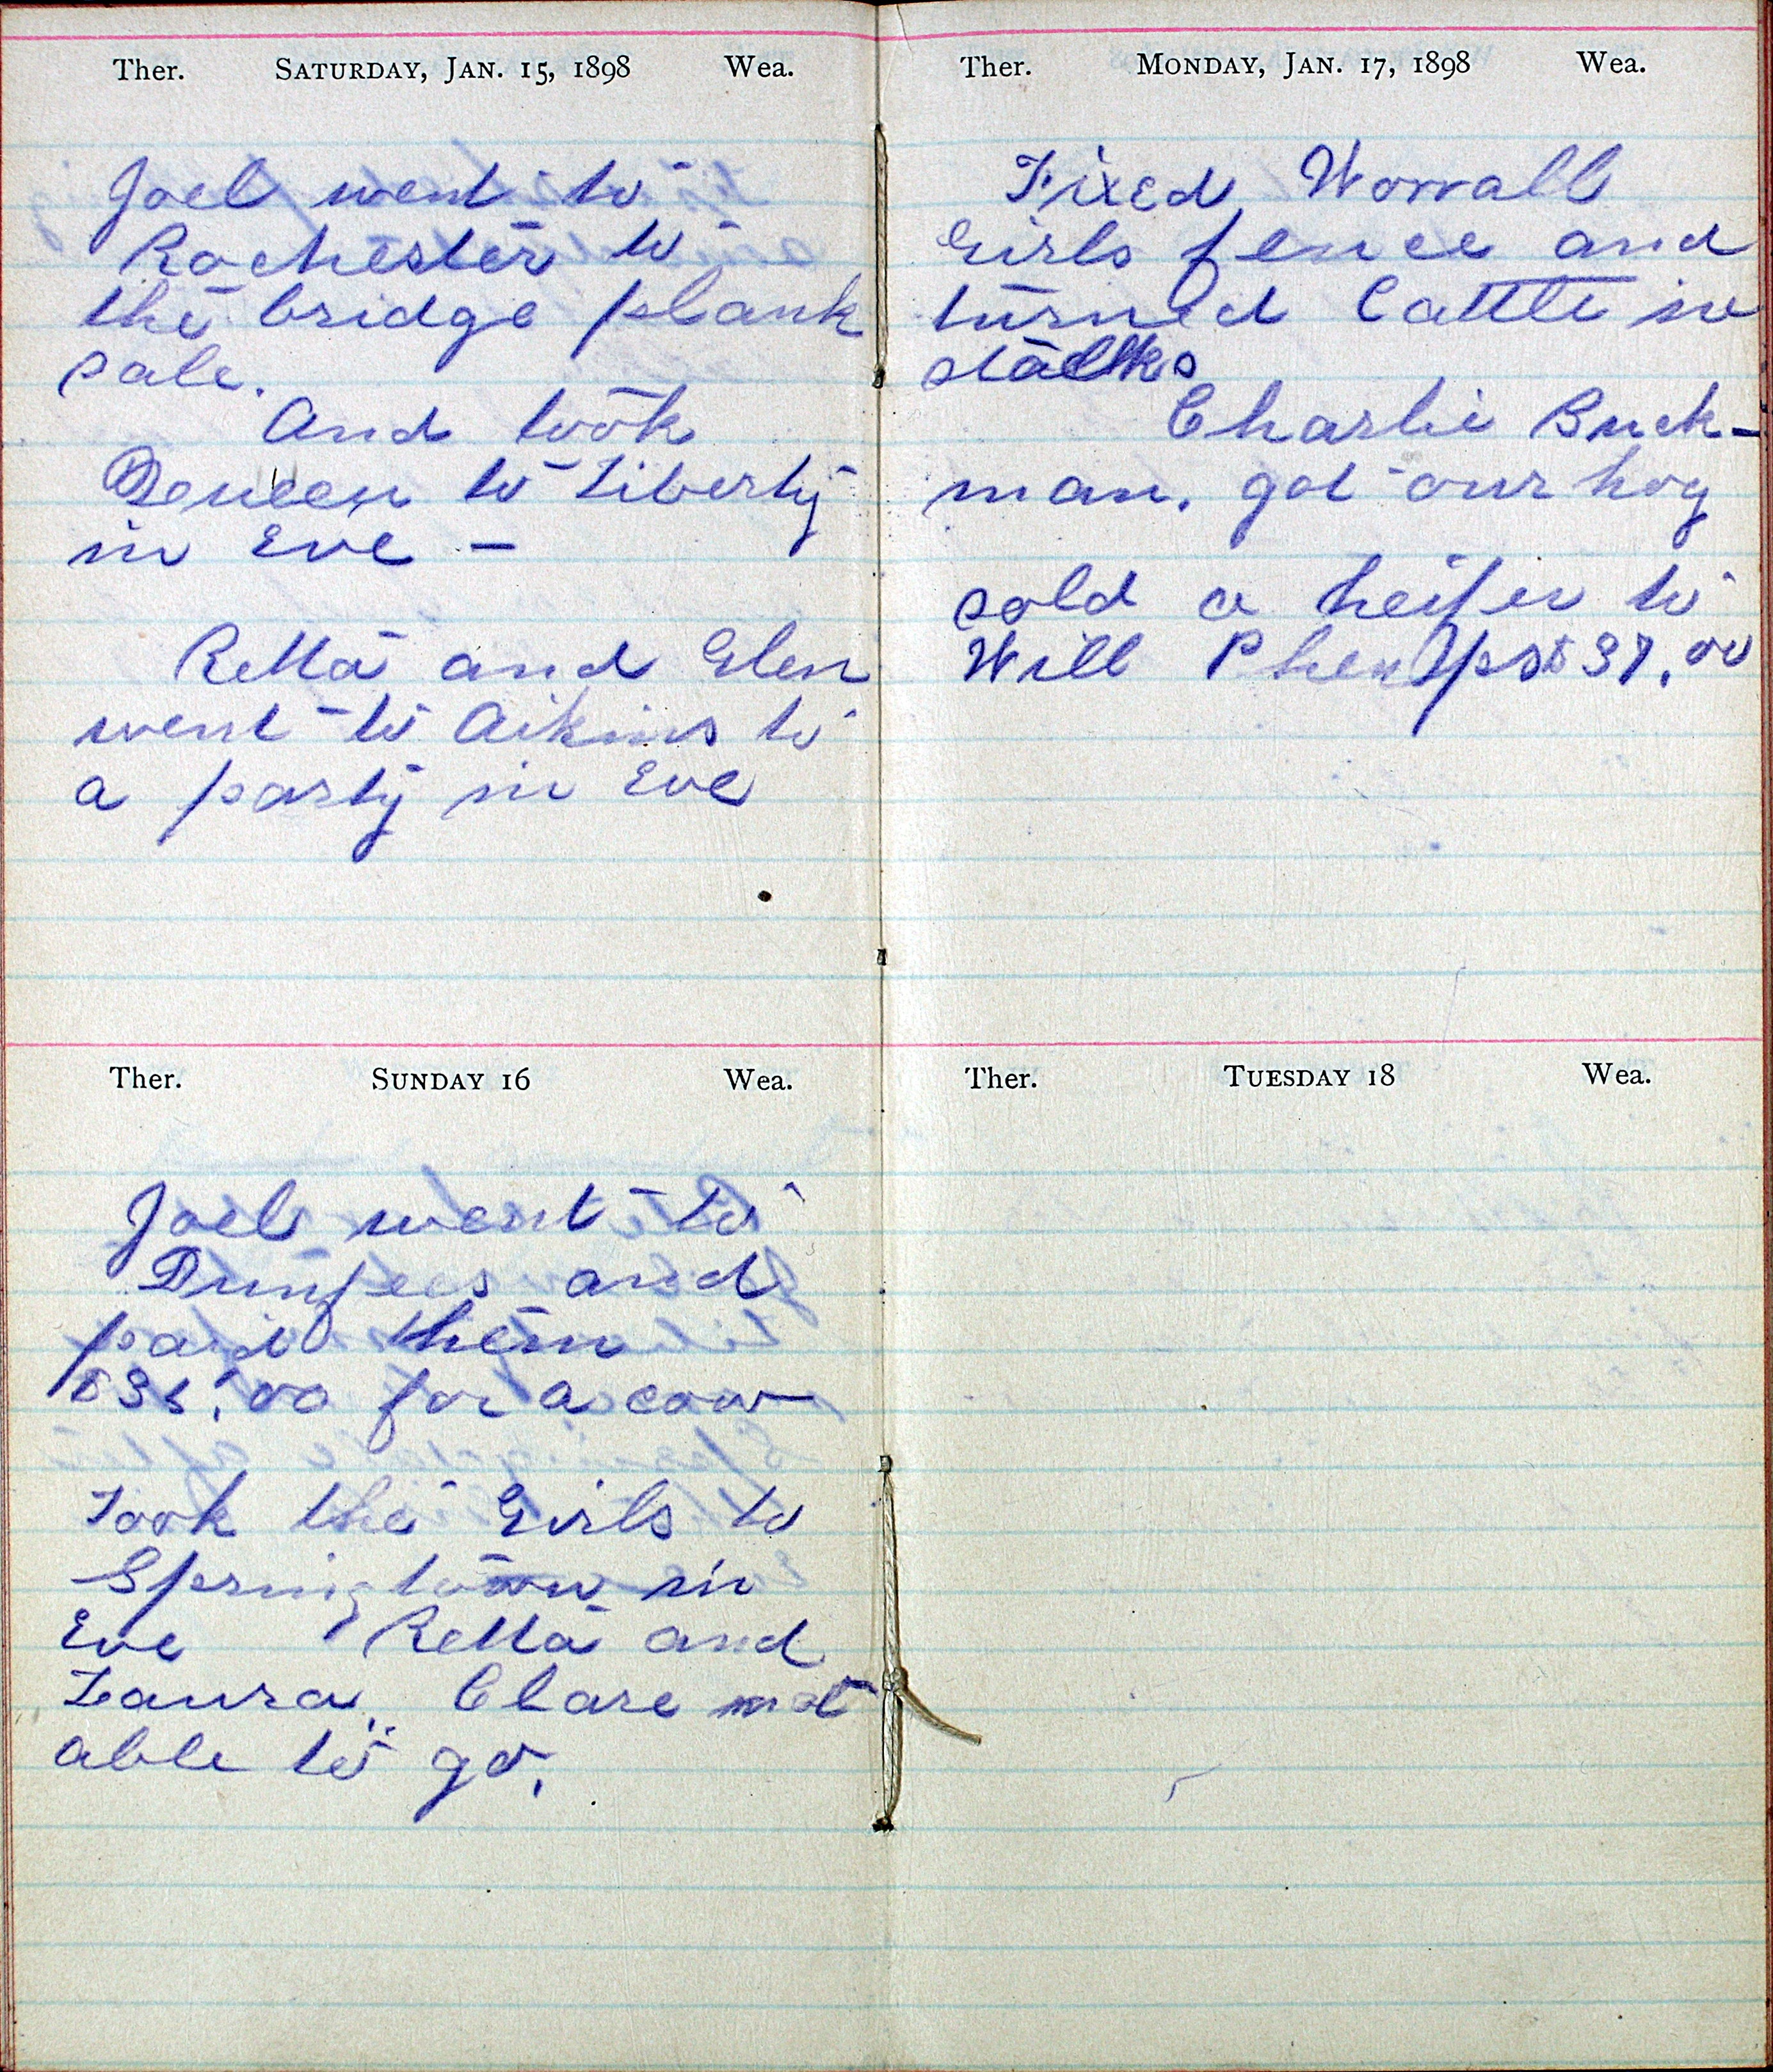 Ther. Saturday, Jan. 15, 1898 Wea.
Joel went to
Rochester to
the bridge plank
sale.
And took
Deneen to Liberty
in Eve —
Retta and Glen
went to Aikins to
a party in Eve
Ther. Sunday 16 Wea.
Joel went to
Dunfees and
paid them
for a cow
Took the Girls to
Springtown in
Eve Retta and
Laura. Clare not
able to go.
Ther. Monday, Jan. 17, 1898 Wea.
Fixed Worrall
Girls fence and
turned Cattle in
stalks
Charlie Buck-
man. got our hog
sold a heifer to
Will $37.00
Ther. Tuesday 18 Wea.